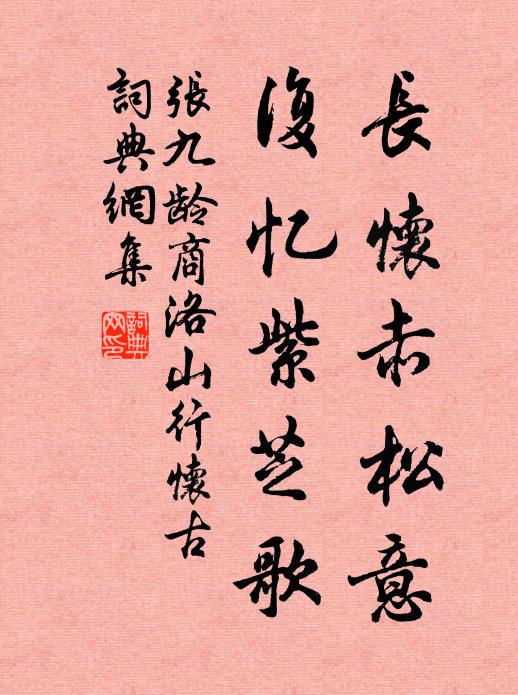 長懷赤松意
復忆紫芝歌
張九龄商洛山行懷古
詞典網集
詞典
网印